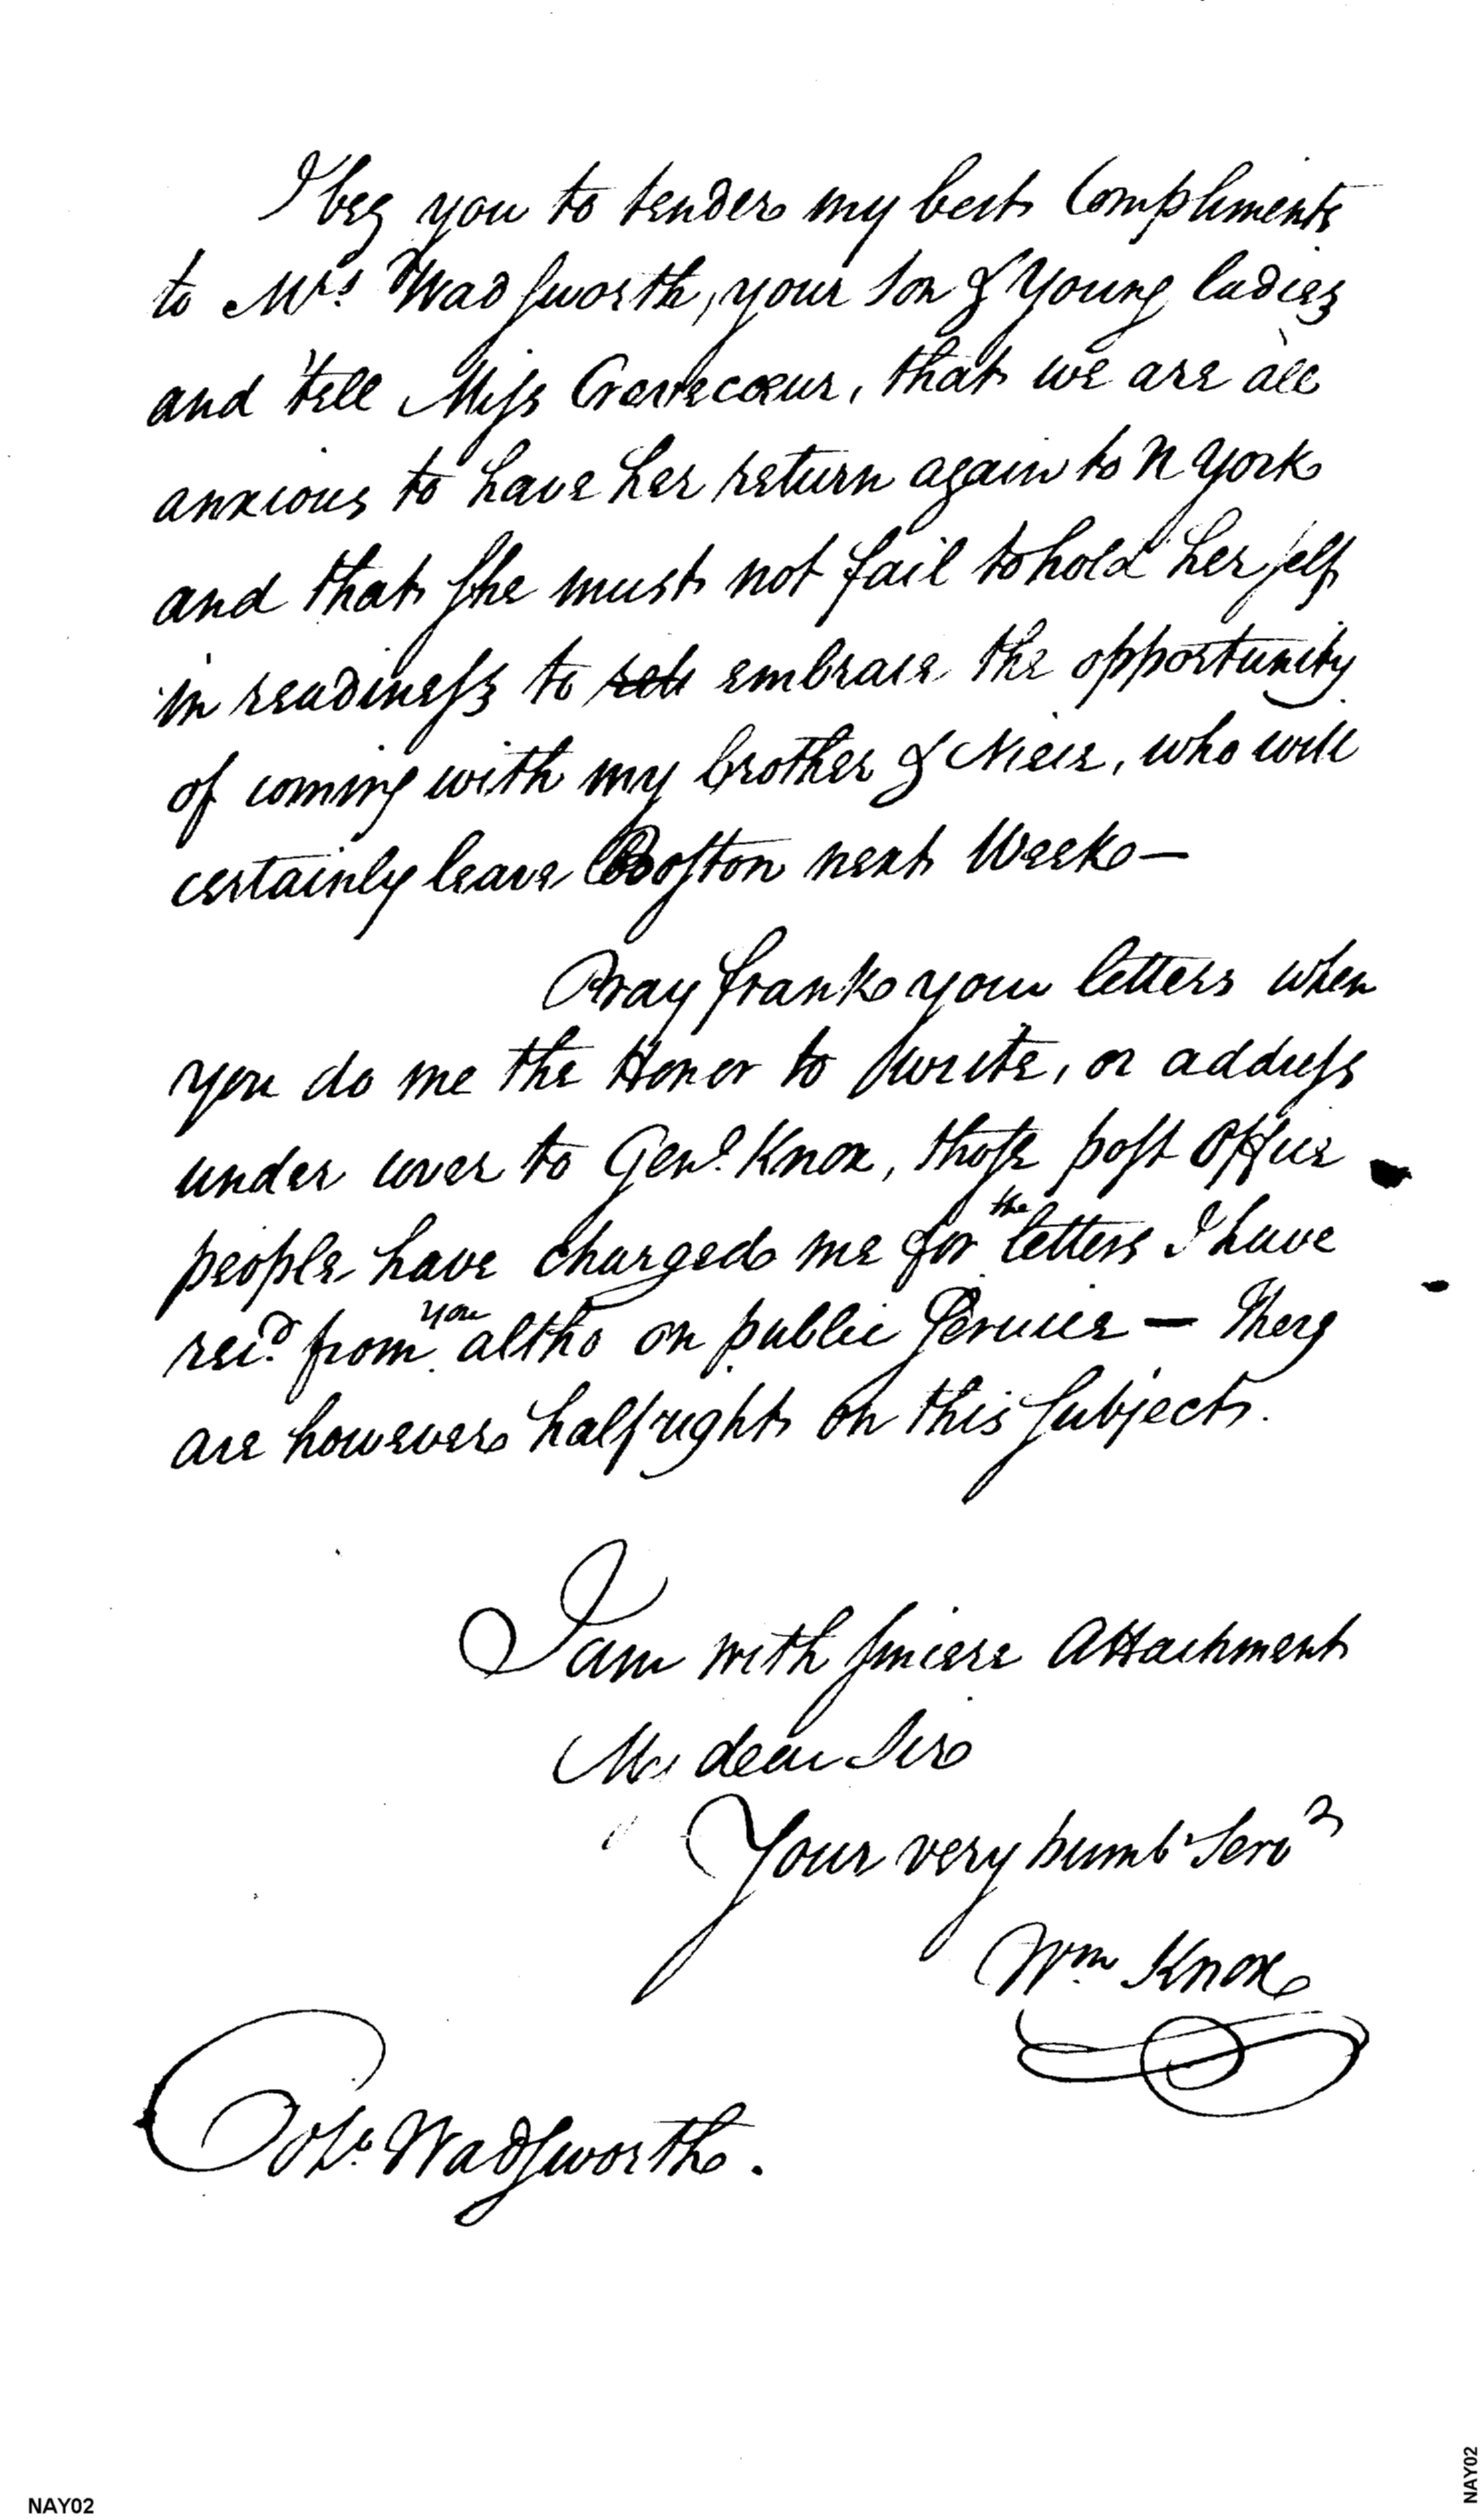 I beg you to tender my best Compliments
to Mrs. Wadsworth, your son & Young ladies
and tell Miss Crevecœur, that we are all
anxious to have her return again to N York
and that she must not fail to hold her self
in readiness to embrace the opportunity
of coming with my brother & Neice, who will
certainly leave Boston next Week—
Pray frank your letters when
you do me the Honor to write, or address
under cover to Genl. Knox, those post Office
people have charged me for the letters I have
recd. from you altho on public Service — They
are however half right on this subject.
I am with sincere Attachment
My dear Sir
Your very humb Servt
Wm Knox
Colo. Wadsworth.
NAY02
NAY02